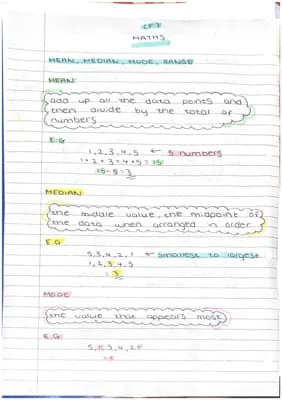 MATHS
MEAN, MEDIAN, MODE, RANGE
MEAN:
add up all the data points and
then divide by the total of
numbers
E.G
1, 2, 3, 4, 5 ← 5 numbers
1+2+3+4+5=15
15÷5=3
MEDIAN:
the middle value, the midpoint of
the data when arranged in order
E.G
5,3,4,2,1 ← smallest to largest
1,2,3,4,5
=3
MODE:
the value that appears most
E.G: